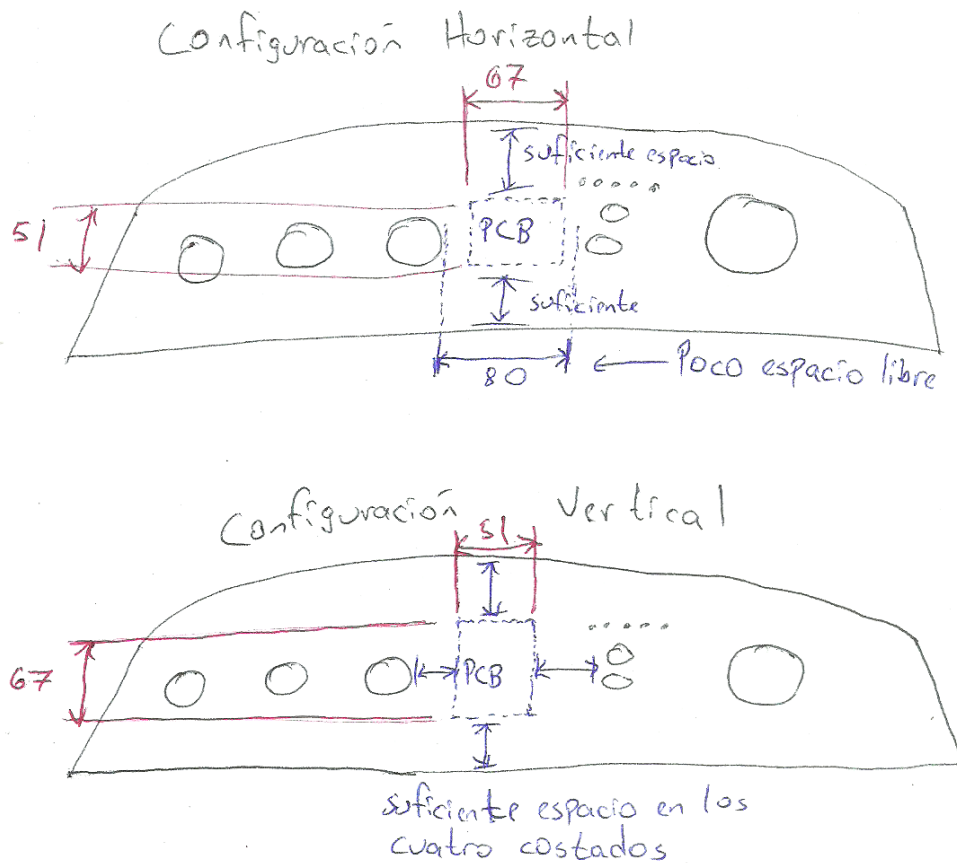 Configuración Horizontal
67
suficiente espacio
51
PCB
suficiente
80
Poco espacio libre
Configuración Vertical
51
67
PCB
suficiente espacio en los
cuatro costados